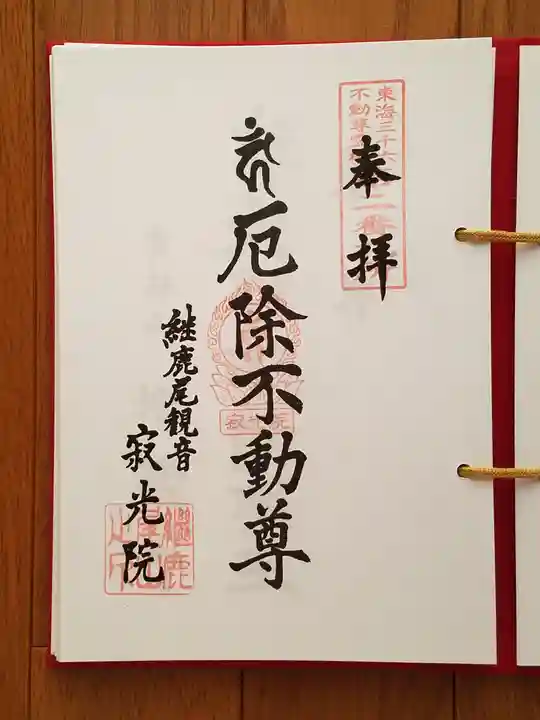 奉拝
東海三十六
不動尊
二番
厄除不動尊
寂光院
継鹿尾観音
寂光院
継鹿